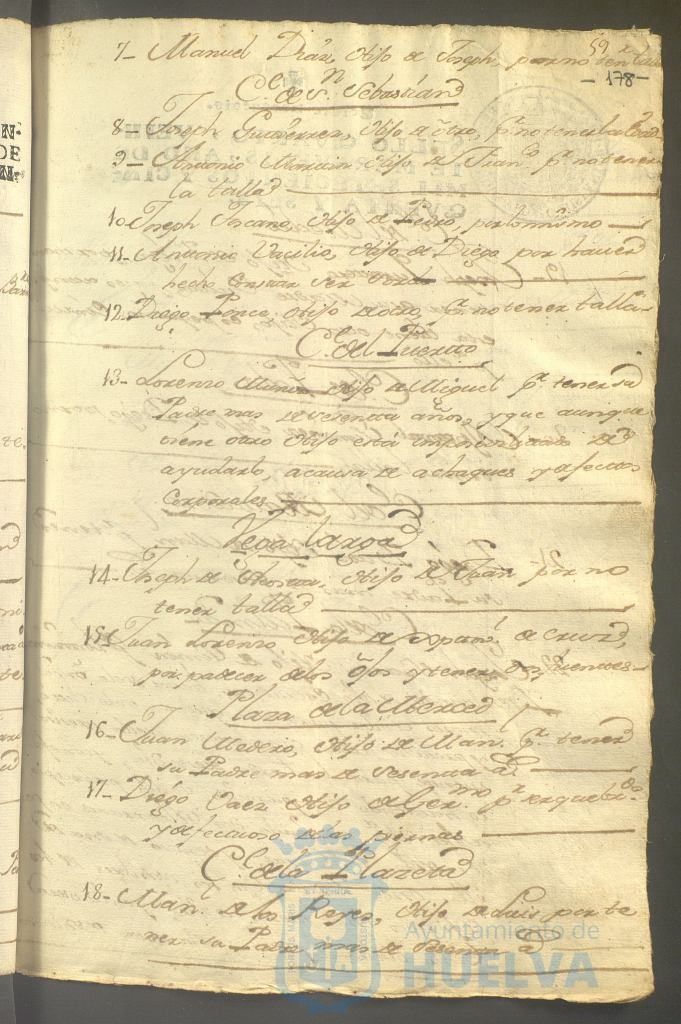 59
7- Manuel Diaz, Hijo de Joseph, por no tener talla
-178-
C.e de S.n Sebastian
8- Joseph Gutierrez, Hijo de otro, p.r no tener la
9- Antonio Hijo de Fran.co p.r no tener
la talla
10 Joseph Toscano, Hijo de Pedro, por lo mismo
11- Antonio Hijo de Diego por haver
hecho constar ser
12- Diego Ponce, Hijo de otro, p.r no tener talla
C.e del Puerto
13- Lorenzo Muñoz Hijo de Miguel p.r tener su
Padre mas de sesenta años, y que aunque
tiene otro Hijo está de
ayudarlo a causa de achaques y defectos
corporales
Vega larga
14- Joseph de Hijo de Juan por no
tener talla
15- Juan Lorenzo Hijo de de Cruz,
por padecer de los ojos y tener fuentes
Plaza de la Merced
16- Juan Hijo de Man.l p.r tener
su Padre mas de sesenta a.s
17- Diego Vaez Hijo de Ger.mo p.r
y defectuoso de las piernas
C.e de la Plazeta
18- Man.l de los Reyes, Hijo de Luis, por te
ner su Padre mas de sesenta a.s
Ayuntamiento de
HUELVA